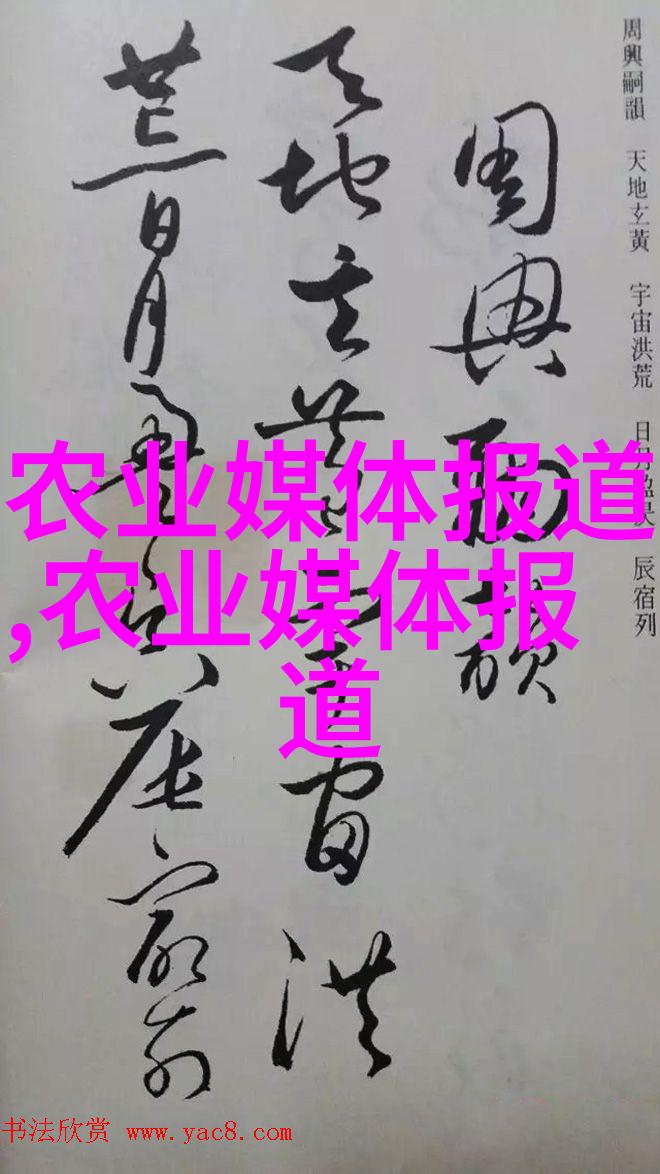 周興嗣韻 天地玄黃 宇宙洪荒 日月盈昃 辰宿列
周興嗣韻
天地玄黃宇宙洪
荒日月盈昃辰宿列
农业媒体报道
,农业媒体报
道
书法欣赏 www.yac8.com